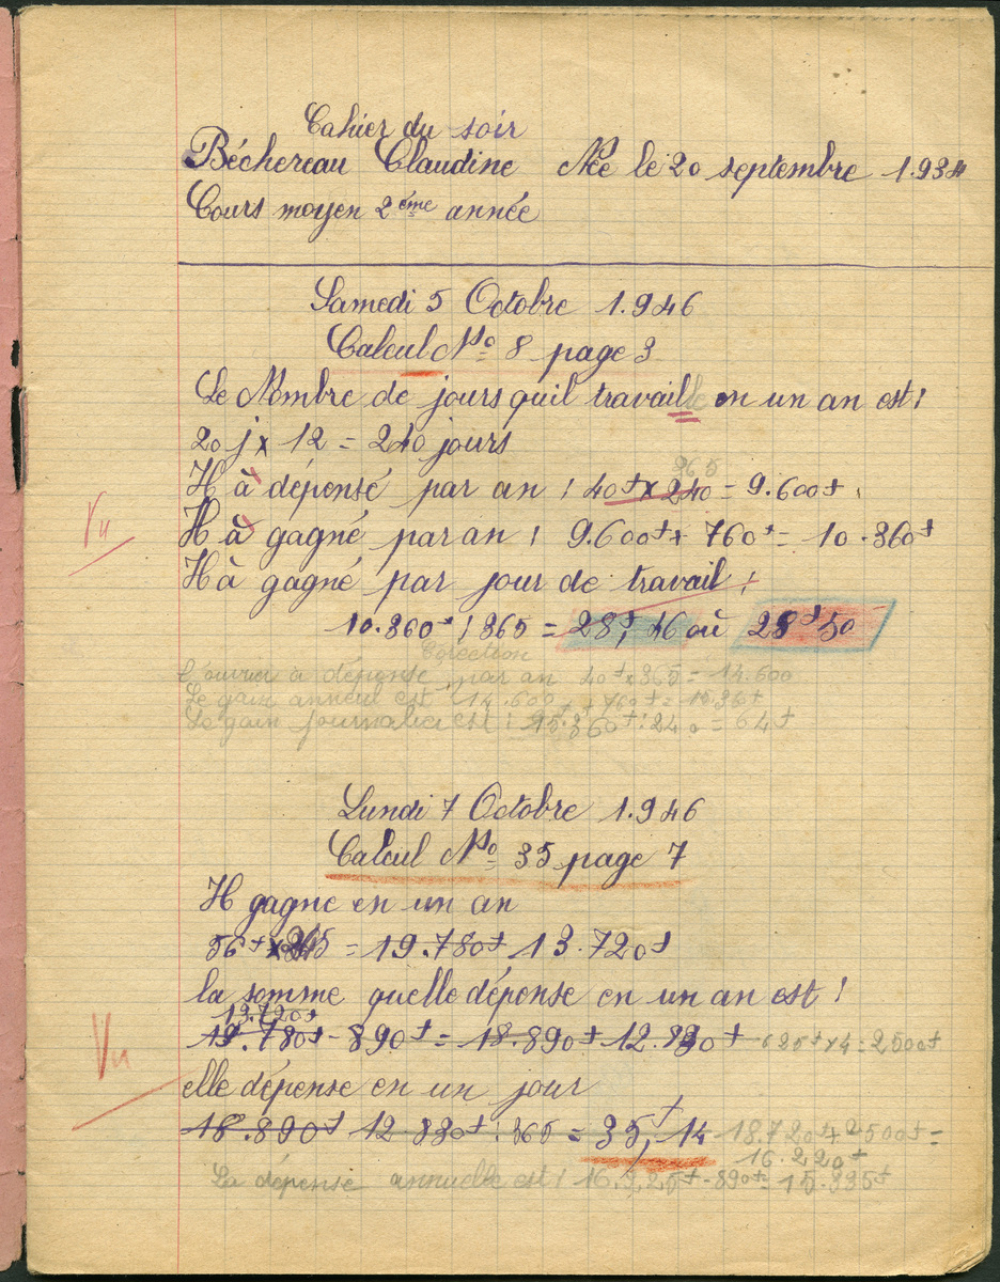 Cahier du soir
Béchereau Claudine Née le 20 septembre 1.934
Cours moyen 2ème année
Samedi 5 Octobre 1.946
Calcul No 8 page 3
Le Nombre de jours quil travaille en un an est :
20 j x 12 = 240 jours
365
Il à dépensé par an : 40f x 240 = 9.600f.
Vu
Il à gagné par an : 9.600f + 760f = 10.360f
Il à gagné par jour de travail :
10.360f : 365 = 28f, 46 où 28f50
Corection
L'ouvrier à dépensé par an 40f x 365 = 14.600
Le gain annuel est : 14.600 + 760f = 15.36f
Le gain journalier est : 15.360f : 240 = 64f
Lundi 7 Octobre 1.946
Calcul No 35 page 7
Il gagne en un an
56f x 245 = 19.780f 13.720f
la somme quelle dépense en un an est :
13.720f
19.780f - 890f = 18.890f 12.830f 625f x 4 = 2500f
Vu
elle dépense en un jour
18.890f 12 830f : 365 = 35f, 14 13.720f + 2500f =
16.220f
La dépense annuelle est : 16.225f - 890f = 15.335f